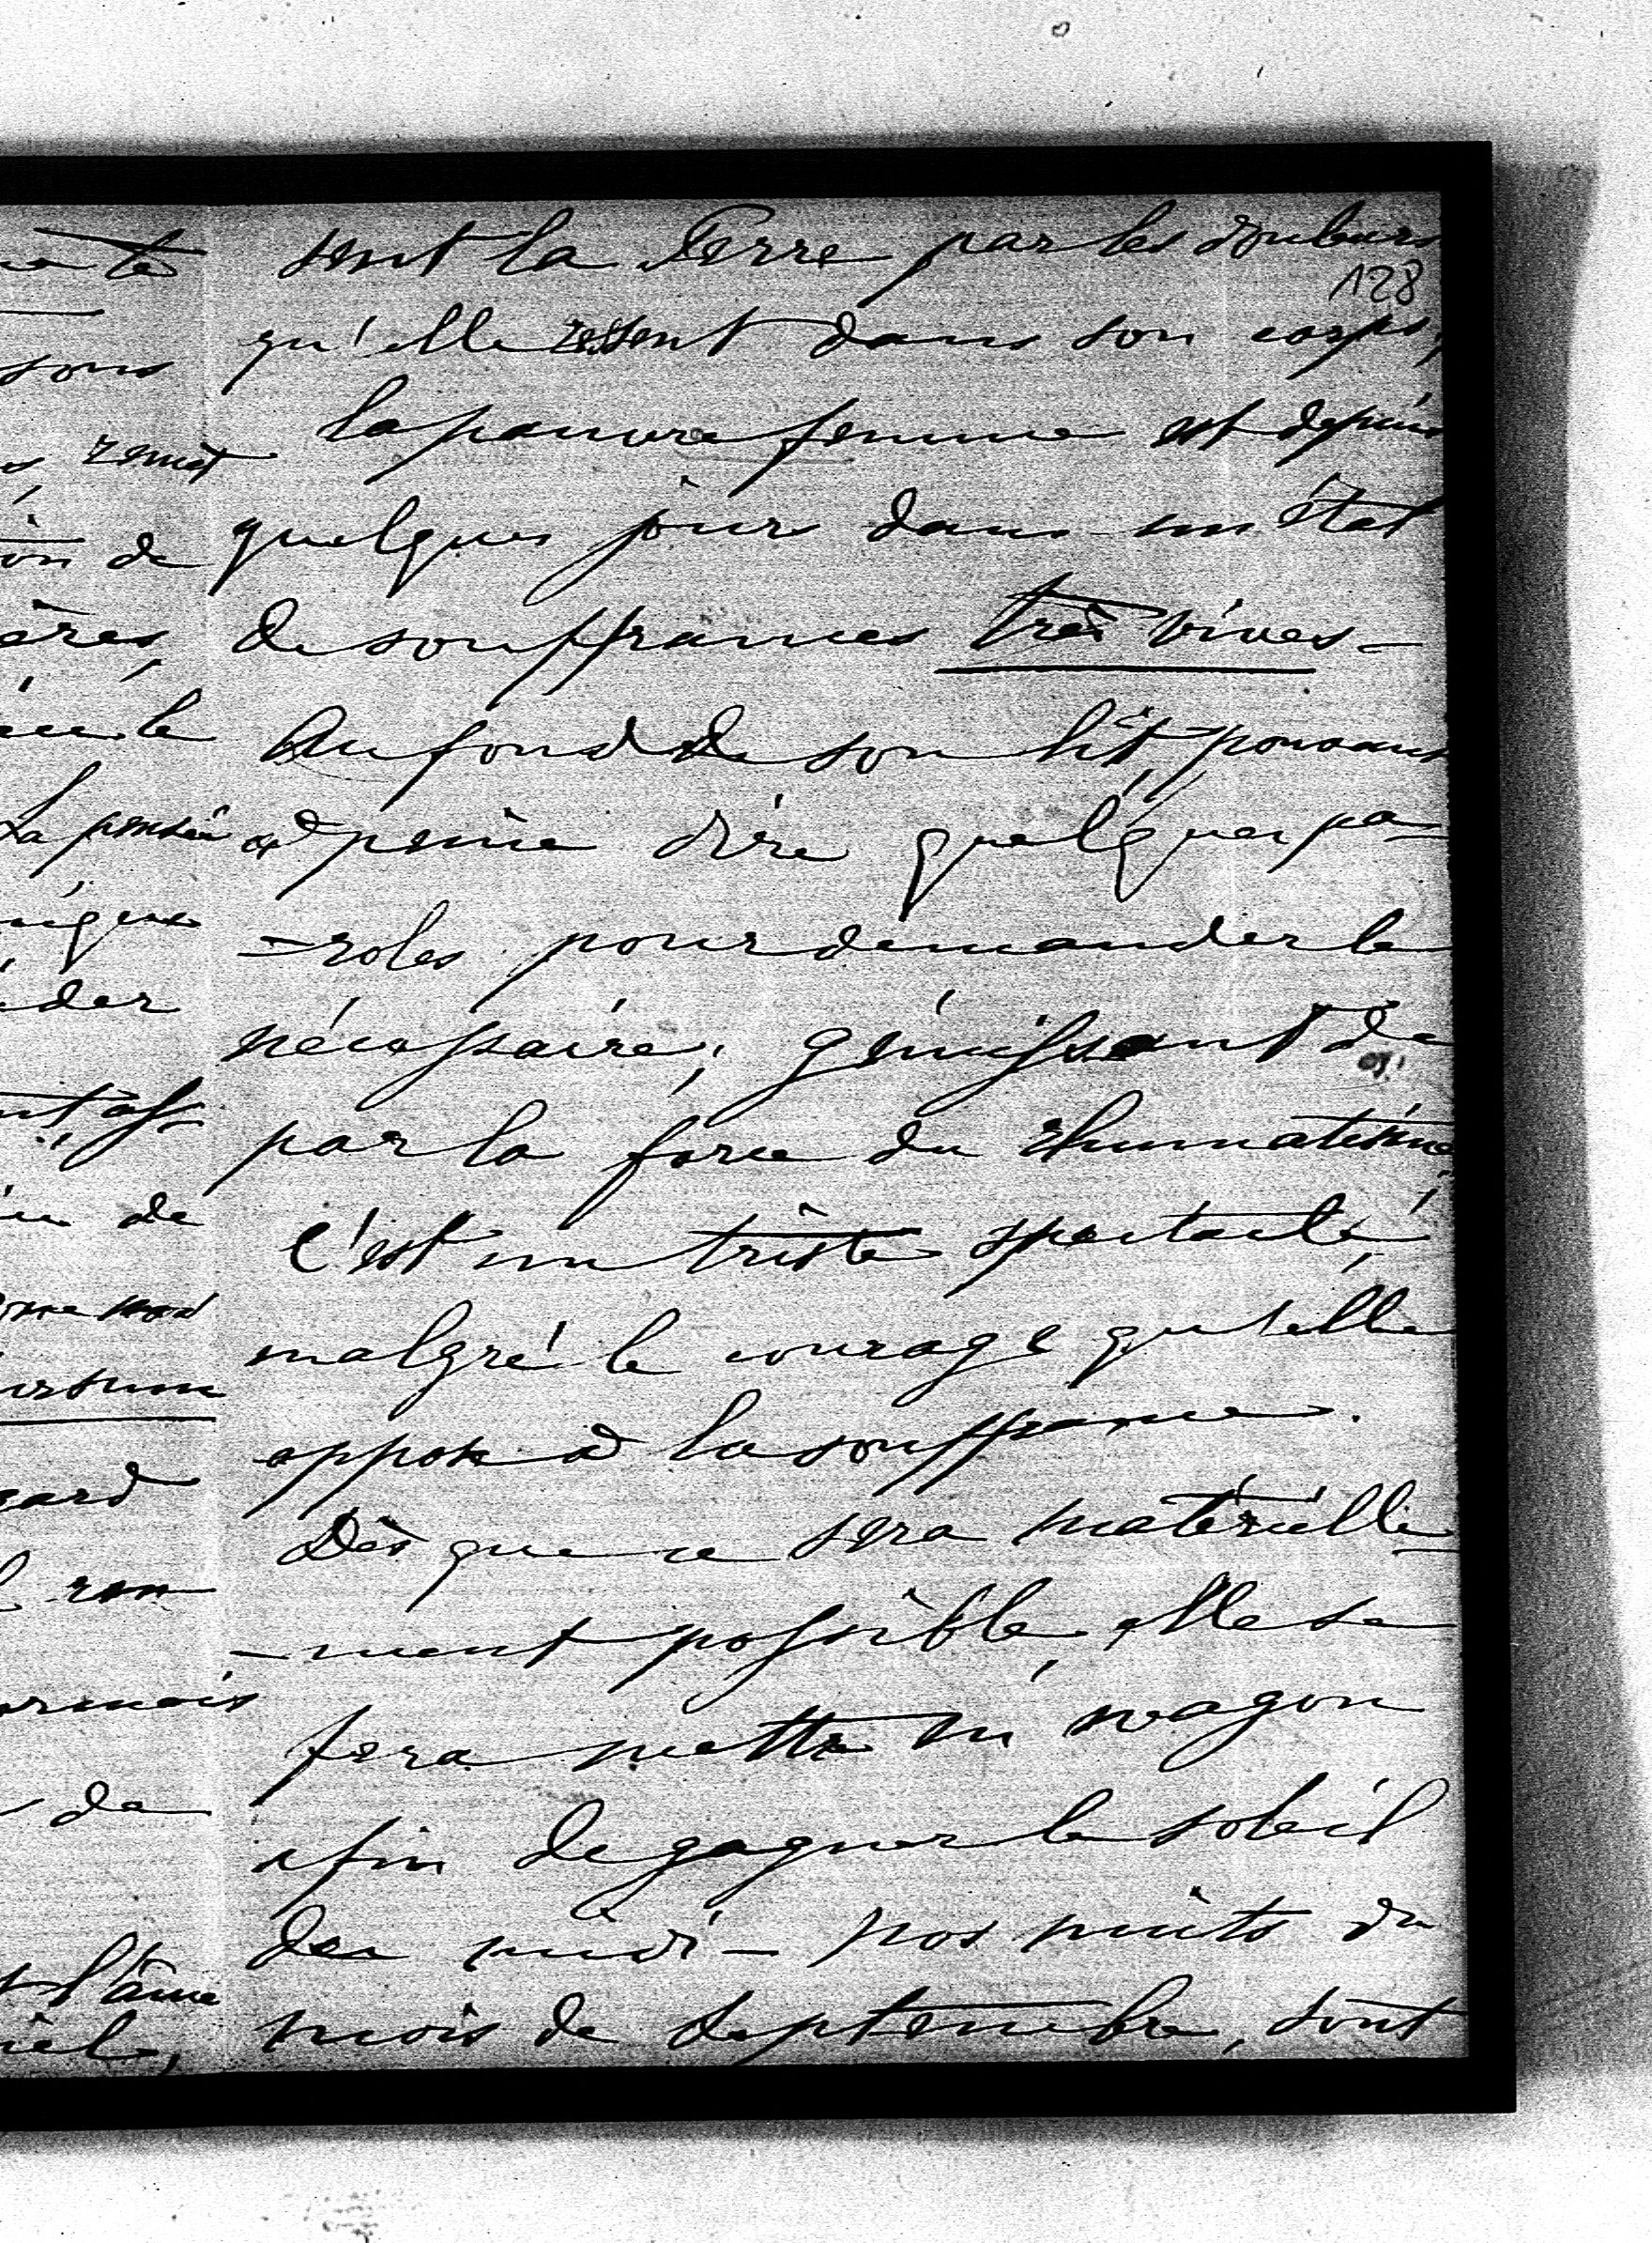 sent la Terre par les douleurs
128
qu'elle ressent dans son corps,
la pauvre femme est depuis
quelques jours dans un état
de souffrances très vives -
Au fond de son lit, pouvant
à peine dire quelques pa-
-roles pour demander le
nécessaire, gémissant de
par la force du rhumatisme,
c'est un triste spectacle,
malgré le courage qu'elle
oppose à la souffrance.
Dès que ce sera matérielle-
-ment possible, elle se
fera mettre en wagon
afin de gagner le soleil
du midi - nos nuits du
mois de Septembre, sont
sons
remet
ion de
La pensée
de
gard
da
l'âme